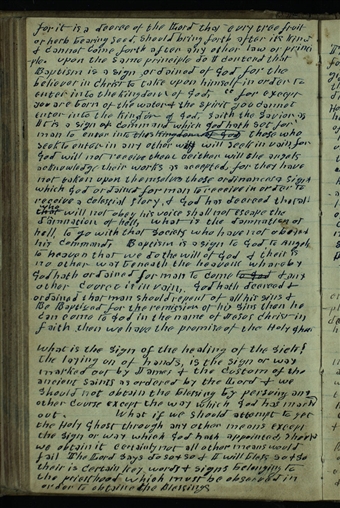 for it is a decree of the Lord that evry tree fruit
or herb bearing seed should bring forth after its kind
& cannot come forth after any other law or princi
ple. upon the same principle do I contend that
Baptism is a sign ordained of God for the
believer in Christ to take upon himself in order to
enter into the kingdom of God, for except
you are born of the water & the spirit you cannot
enter into the kingdom of God saith the Savior as
It is a sign of command which God hath set for
man to enter into the kingdom of God those who
seek to enter in any other way will seek in vain for
God will not receive them neither will the angels
acknowledge their works as accepted, for they have
not taken upon themselves those ordinances & signs
which God ordained for man to receive in order to
receive a celestial glory, & God has decreed that all
who will not obey his voice shall not escape the
damnation of hell, what is the damnation of
hell, to go with that society who have not obeyed
his commands Baptism is a sign to God, to angels
to heaven that we do the will of God & their is
no other way beneath the heavens whereby
God hath ordained for man to come to God & any
other course is in vain, God hath decreed &
ordained that man should repent of all his sins &
Be Baptized for the remission of his sins then he
can come to God in the name of Jesus Christ in
faith then we have the promise of the Holy Ghost
What is the sign of the healing of the sick?
the laying on of hands, is the sign or way
marked out by James & the custom of the
ancient saints as ordered by the Lord & we
should not obtain the blessing by persuing any
other course except the way which God has marked
out. What if we should attempt to get
the Holy Ghost through any other means except
the sign or way which God hath appointed, should
we obtain it certainly not all other means would
fail The Lord says do so & so & I will bless so & so
their is certain key words & signs belonging to
the priesthood which must be observed in
order to obtain the Blessings